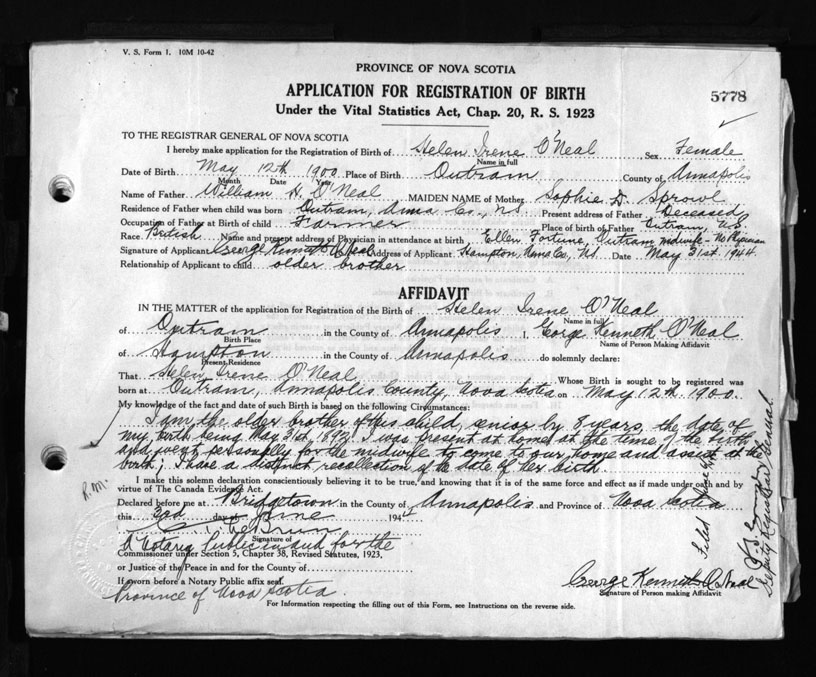 V. S. Form 1. 10M 10-42
PROVINCE OF NOVA SCOTIA
APPLICATION FOR REGISTRATION OF BIRTH
5778
Under the Vital Statistics Act, Chap. 20, R. S. 1923
TO THE REGISTRAR GENERAL OF NOVA SCOTIA
I hereby make application for the Registration of Birth of Helen Irene O'Neal, Sex Female
Name in full
Date of Birth May 12th 1900 Place of Birth Outram County of Annapolis
Month Date Year
Name of Father William H. O'Neal MAIDEN NAME of Mother Sophie D. Sprowl
Residence of Father when child was born Outram, Anna Co., N.S. Present address of Father Deceased
Occupation of Father at Birth of child Farmer Place of birth of Father Outram, N.S.
Race British Name and present address of Physician in attendance at birth Ellen Fortune, Outram midwife - No Physician
Signature of Applicant George Kenneth O'Neal Address of Applicant Hampton, Anna Co., N.S. Date May 31st. 1944
Relationship of Applicant to child older brother
AFFIDAVIT
IN THE MATTER of the application for Registration of the Birth of Helen Irene O'Neal
Name in full
of Outram in the County of Annapolis I, George Kenneth O'Neal
Birth Place Name of Person Making Affidavit
of Hampton in the County of Annapolis do solemnly declare:
Present Residence
That Helen Irene O'Neal Whose Birth is sought to be registered was
born at Outram, Annapolis County, Nova Scotia on May 12th. 1900.
My knowledge of the fact and date of such Birth is based on the following Circumstances:
I am the older brother of this child, senior by 8 years, the date of
my birth being May 31st, 1892. I was present at home at the time of the birth
and went personally for the midwife to come to our home and assist at the
birth; I have a distinct recollection of the date of her birth.
I make this solemn declaration conscientiously believing it to be true, and knowing that it is of the same force and effect as if made under oath and by
virtue of The Canada Evidence Act.
R.M.
Declared before me at Bridgetown in the County of Annapolis and Province of Nova Scotia
this 3rd day of June 194
Signature of
A Notary Public in and for the
Commissioner under Section 5, Chapter 38, Revised Statutes, 1923,
or Justice of the Peace in and for the County of
If sworn before a Notary Public affix seal.
George Kenneth O'Neal
Province of Nova Scotia
Signature of Person making Affidavit
For Information respecting the filling out of this Form, see Instructions on the reverse side.
Filed June
Deputy Registrar General.